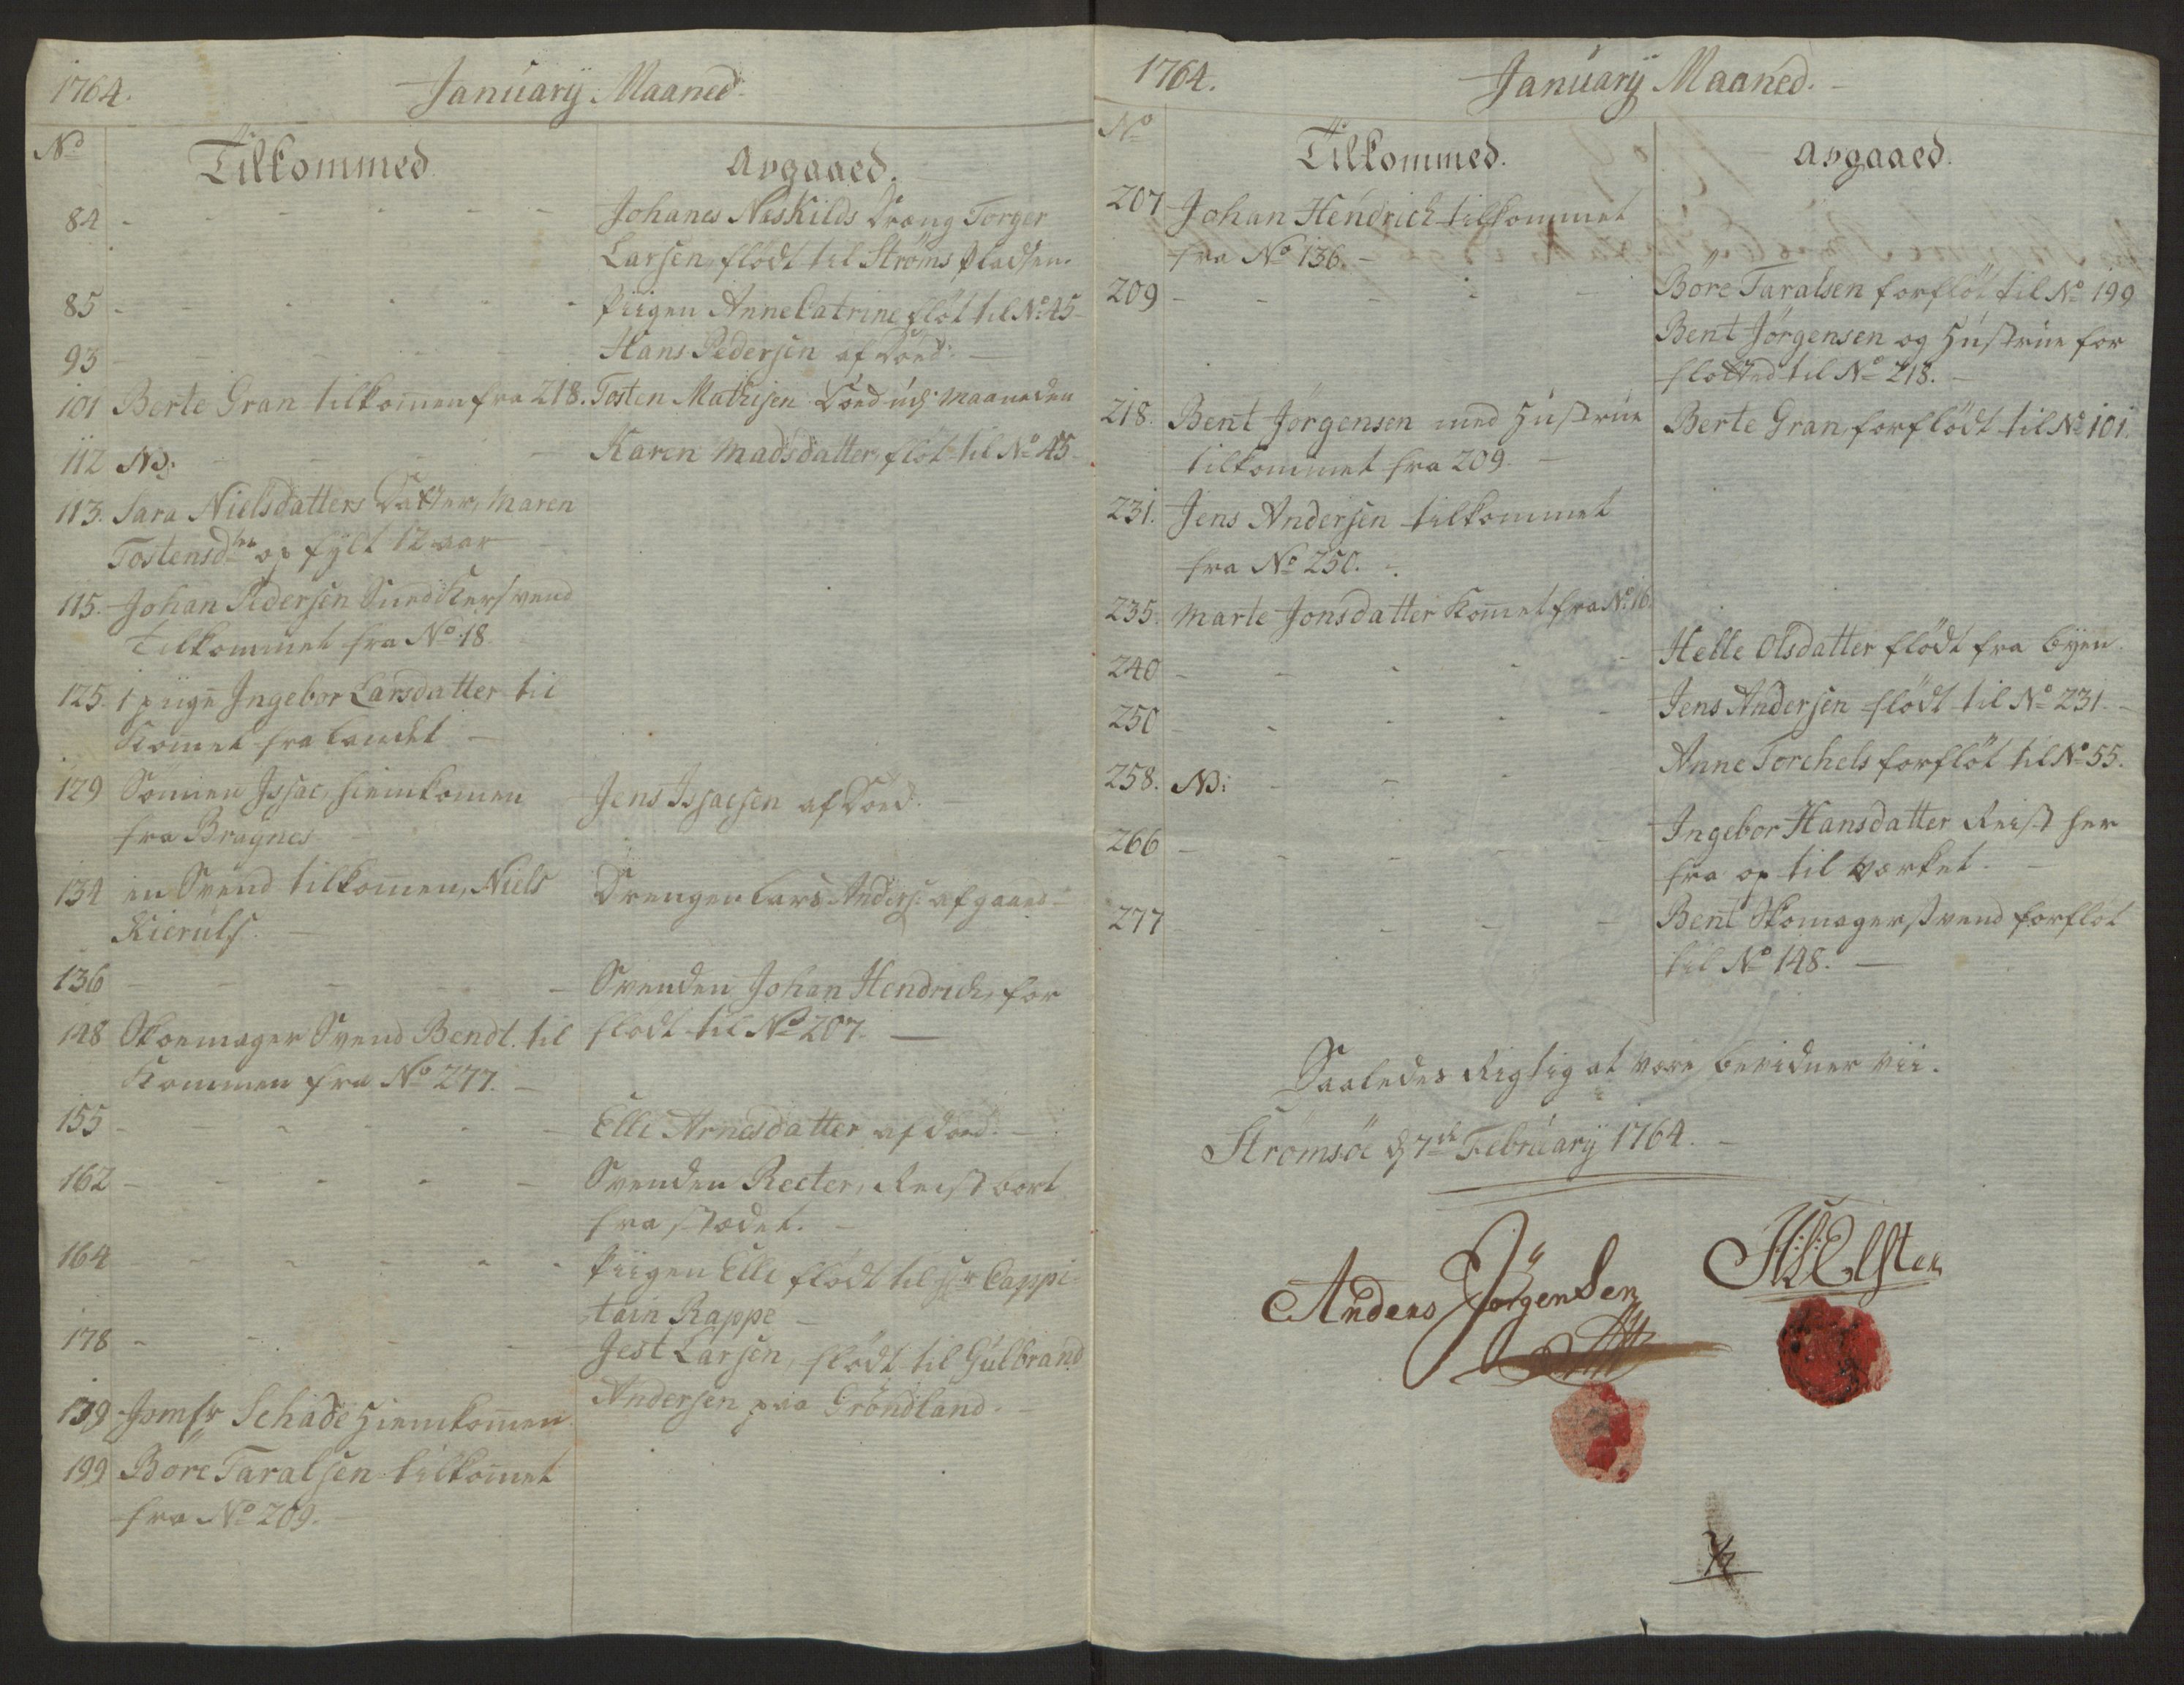 1764. Januarÿ Maaned.
No Tilkommed avgaaed.
84 - - - - - Johanes Næskilds Dræng Torger
Larsen, flödt til Ströms Pladsen.
85 - - - - - Piigen Anne Catrine flöt til No 45 -
93 - - - - - Hans Pedersen af Döed. -
101 Berte Gran tilkomen fra 218. Tosten Mathisen Döed udj Maaneden
112 NB: - - - Karen Madsdatter, flöt til No 45 -
113. Sara Nielsdatters Datter, Maren
Tostensdtr opfÿlt 12 aar -
115. Johan Pedersen Snedkersvend
Tilkommet fra No 18. -
125. 1 piige Ingebor Larsdatter til
Kommet fra Landet -
129 Sönnen Issac, hiemkomen Jens Issacsen af Döed. -
fra Bragnes -
134 en Svend tilkomen, Niels Drengen Lars Anders: afgaaed -
Kierulf. -
136 - - - - - Svenden Johan Hendrich, for
148 Skoemager Svend Bendt. til flödt til No 207. -
Kommen fra No 277. -
155 - - - - - Elli Arnesdatter af döed. -
162 - - - - - Svenden Recter, Reist bort
fra stædet. -
164 - - - - - Piigen Elli flödt til Hr Cappi-
tain Rappe -
178 - - - - Jest Larsen, flödt til Gulbrand
Andersen paa Gröndland. -
199 Jomfr Schade Hiemkomen
199 Böre Taralsen tilkomet
fra No 209. -
1764. Januarÿ Maaned. -
No Tilkommed. avgaaed.
207 Johan Hendrich tilkommet
fra No 136. -
209 - - - - - Böre Taralsen forflöt til No 199
Bent Jörgensen og Hustrue for
flötted til No 218. -
218. Bent Jörgensen med Hustrue Berte Gran, forflödt til No 101.
tilkommet fra 209. -
231. Jens Andersen tilkommet
fra No 250. -
235. Marte Jonsdatter Komet fra No 16.
240 - - - - - Helle Olsdatter flödt fra bÿen.
250 - - - - - Jens Andersen flödt til No 231. -
258. NB: - - - Anne Torchels forflöt til No 55.
266 - - - - - Ingebor Hansdatter Reist her
fra op til værket. -
277 - - - - - Bent Skomagersvend forflöt
til No 148. -
Saaledes Rigtig at være bevidner vii.
Strömsöe d 7de Februarÿ 1764. -
Anders Jörgensen
H: Elster